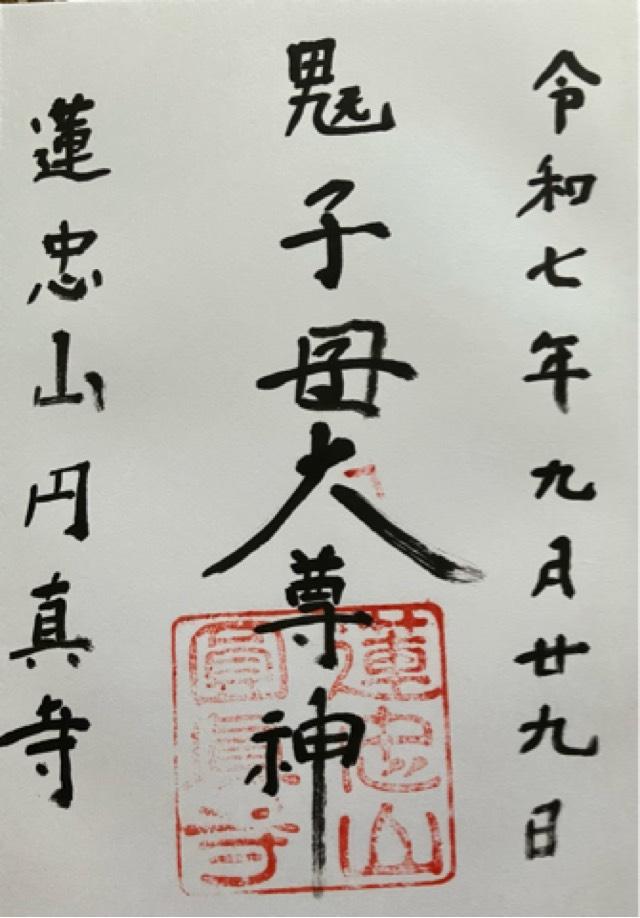 令和七年九月廿九日
鬼子母大尊神
蓮忠山円真寺
蓮忠山
圓眞寺